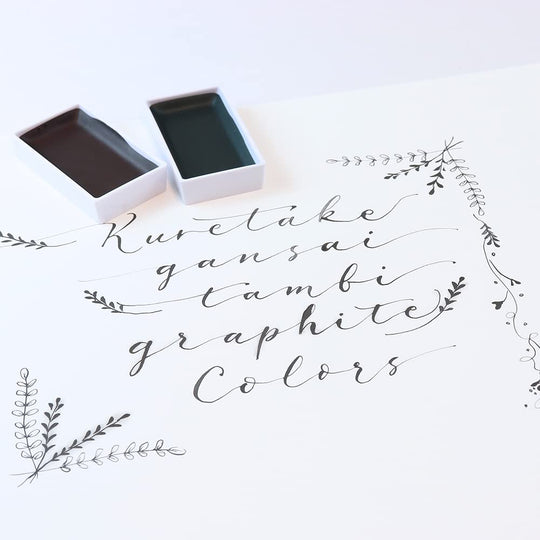 Kuretake
gansai
tambi
graphite
Colors